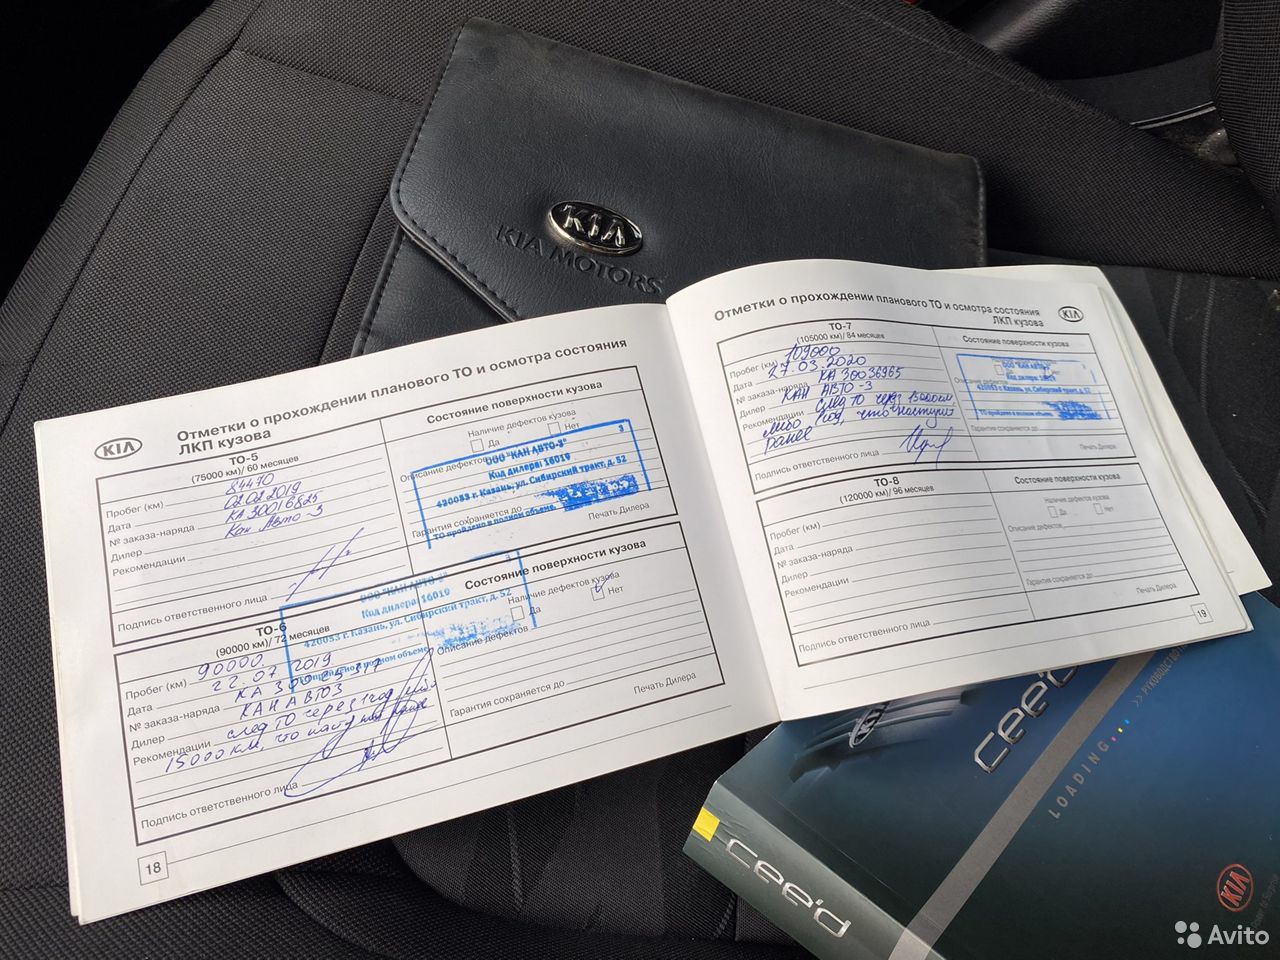 KIA
KIA MOTORS
KIA
Отметки о прохождении планового ТО и осмотра состояния
ЛКП кузова
ТО-5
(75000 км)/ 60 месяцев
Пробег (км) 84470
Дата 02.02.2019
№ заказа-наряда КА30016825
Дилер Кан Авто-3
Рекомендации
Подпись ответственного лица
Состояние поверхности кузова
Наличие дефектов кузова
Да Нет
Описание дефектов
Гарантия сохраняется до
Печать Дилера
ООО "КАН АВТО-3"
Код дилера: 16019
420053 г. Казань, ул. Сибирский тракт, д. 52
ТО пройдено в полном объеме
ТО-6
(90000 км)/ 72 месяцев
Пробег (км) 90000
Дата 22.07.2019
№ заказа-наряда
Дилер КАН АВТО3
Рекомендации след ТО через 1 год или
15000 км, что наступит ранее
Подпись ответственного лица
Состояние поверхности кузова
Наличие дефектов кузова
Да Нет
Описание дефектов
Гарантия сохраняется до
Печать Дилера
ООО "КАН АВТО-3"
Код дилера: 16019
420053 г. Казань, ул. Сибирский тракт, д. 52
полном объеме
18
Отметки о прохождении планового ТО и осмотра состояния
ЛКП кузова
KIA
ТО-7
(105000 км)/ 84 месяцев
Пробег (км) 109000
Дата 27.03.2020
№ заказа-наряда КА30036965
Дилер КАН АВТО-3
Рекомендации след ТО через
либо год, что наступит
ранее
Подпись ответственного лица
Состояние поверхности кузова
Описание дефектов
Гарантия сохраняется до
Печать Дилера
ООО "КАН АВТО-3"
Код дилера: 16019
420053 г. Казань, ул. Сибирский тракт, д. 52
ТО пройдено в полном объеме
ТО-8
(120000 км)/ 96 месяцев
Пробег (км)
Дата
№ заказа-наряда
Дилер
Рекомендации
Подпись ответственного лица
Состояние поверхности кузова
Наличие дефектов кузова
Да Нет
Описание дефектов
Гарантия сохраняется до
Печать Дилера
19
KIA
cee'd
LOADING
cee'd
KIA
Avito